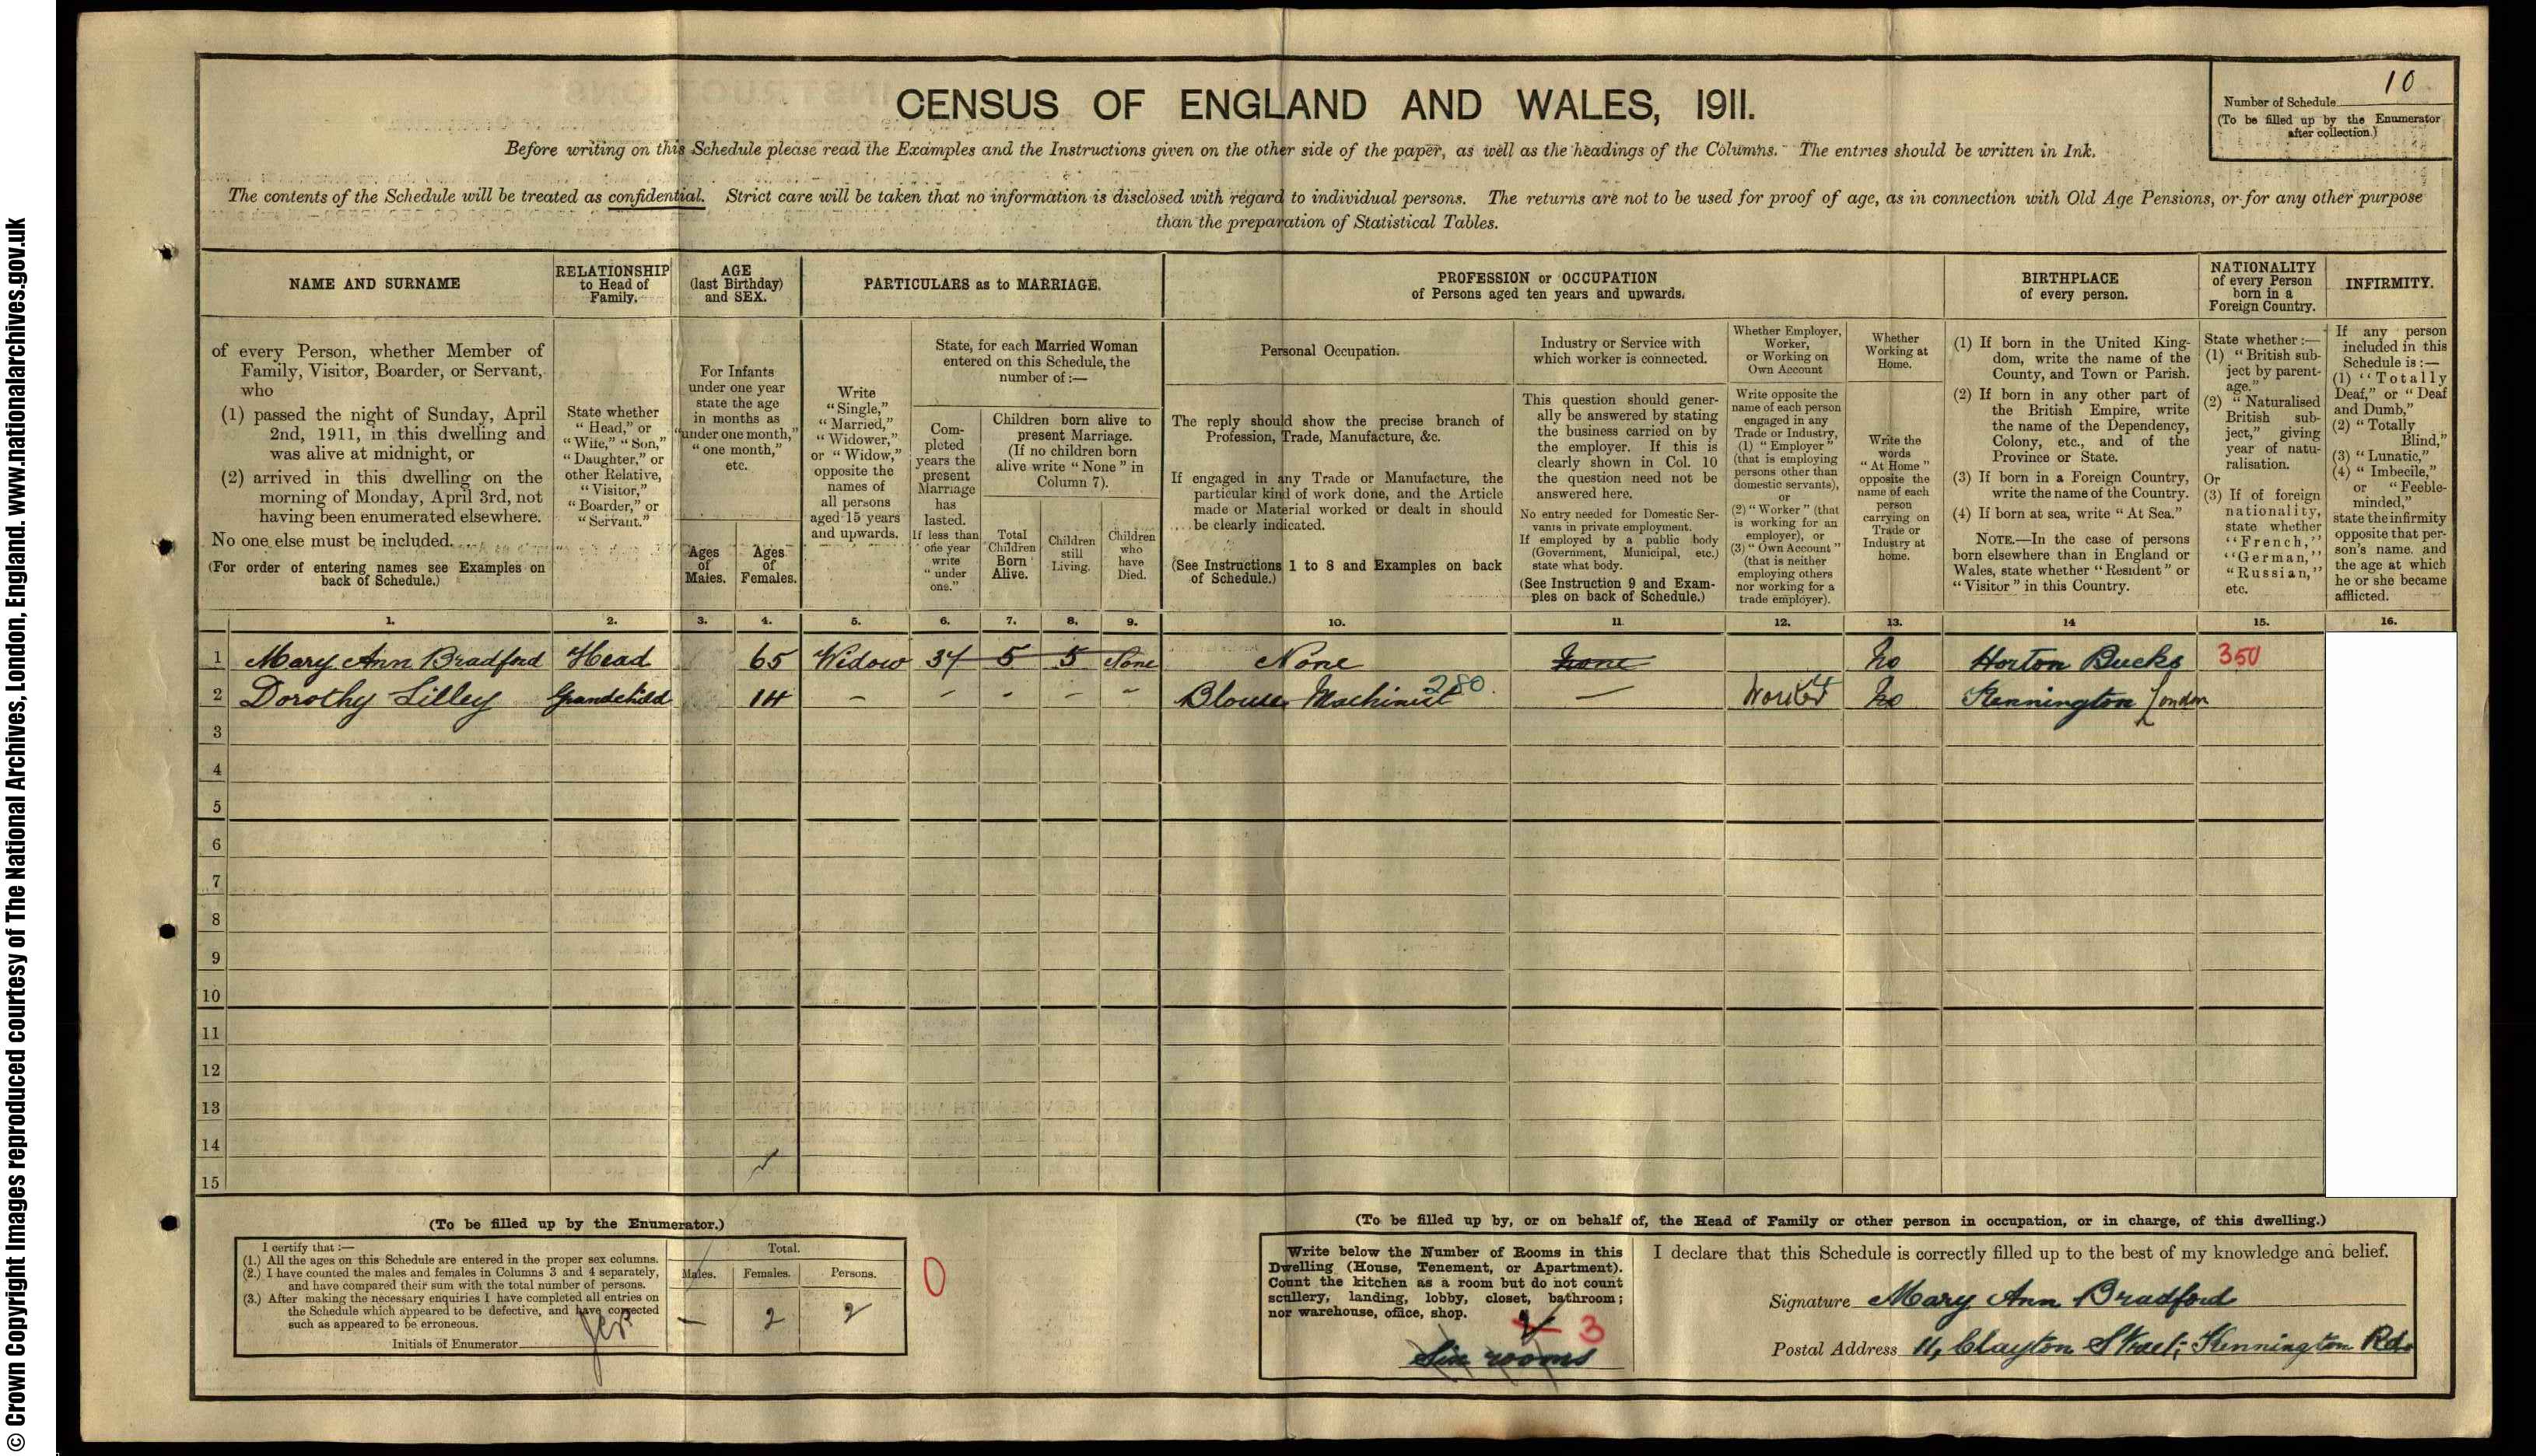 © Crown Copyright Images reproduced courtesy of The National Archives, London, England. www.nationalarchives.gov.uk
CENSUS OF ENGLAND AND WALES, 1911.
10
Number of Schedule
(To be filled up by the Enumerator
after collection.)
Before writing on this Schedule please read the Examples and the Instructions given on the other side of the paper, as well as the headings of the Columns. The entries should be written in Ink.
The contents of the Schedule will be treated as confidential. Strict care will be taken that no information is disclosed with regard to individual persons. The returns are not to be used for proof of age, as in connection with Old Age Pensions, or for any other purpose
than the preparation of Statistical Tables.
NAME AND SURNAME
of every Person, whether Member of
Family, Visitor, Boarder, or Servant,
who
(1) passed the night of Sunday, April
2nd, 1911, in this dwelling and
was alive at midnight, or
(2) arrived in this dwelling on the
morning of Monday, April 3rd, not
having been enumerated elsewhere.
No one else must be included.
(For order of entering names see Examples on
back of Schedule.)
RELATIONSHIP
to Head of
Family.
State whether
"Head," or
"Wife," "Son,"
"Daughter," or
other Relative,
"Visitor,"
"Boarder," or
"Servant."
AGE
(last Birthday)
and SEX.
For Infants
under one year
state the age
in months as
"under one month,"
"one month,"
etc.
Ages
of
Males.
Ages
of
Females.
PARTICULARS as to MARRIAGE.
Write
"Single,"
"Married,"
"Widower,"
or "Widow,"
opposite the
names of
all persons
aged 15 years
and upwards.
State, for each Married Woman
entered on this Schedule, the
number of:—
Com-
pleted
years the
present
Marriage
has
lasted.
If less than
one year
write
"under
one."
Children born alive to
present Marriage.
(If no children born
alive write "None" in
Column 7).
Total
Children
Born
Alive.
Children
still
Living.
Children
who
have
Died.
PROFESSION or OCCUPATION
of Persons aged ten years and upwards.
Personal Occupation.
The reply should show the precise branch of
Profession, Trade, Manufacture, &c.
If engaged in any Trade or Manufacture, the
particular kind of work done, and the Article
made or Material worked or dealt in should
be clearly indicated.
(See Instructions 1 to 8 and Examples on back
of Schedule.)
Industry or Service with
which worker is connected.
This question should gener-
ally be answered by stating
the business carried on by
the employer. If this is
clearly shown in Col. 10
the question need not be
answered here.
No entry needed for Domestic Ser-
vants in private employment.
If employed by a public body
(Government, Municipal, etc.)
state what body.
(See Instruction 9 and Exam-
ples on back of Schedule.)
Whether Employer,
Worker,
or Working on
Own Account
Write opposite the
name of each person
engaged in any
Trade or Industry,
(1) "Employer"
(that is employing
persons other than
domestic servants),
or
(2) "Worker" (that
is working for an
employer), or
(3) "Own Account"
(that is neither
employing others
nor working for a
trade employer).
Whether
Working at
Home.
Write the
words
"At Home"
opposite the
name of each
person
carrying on
Trade or
Industry at
home.
BIRTHPLACE
of every person.
(1) If born in the United King-
dom, write the name of the
County, and Town or Parish.
(2) If born in any other part of
the British Empire, write
the name of the Dependency,
Colony, etc., and of the
Province or State.
(3) If born in a Foreign Country,
write the name of the Country.
(4) If born at sea, write "At Sea."
NOTE.—In the case of persons
born elsewhere than in England or
Wales, state whether "Resident" or
"Visitor" in this Country.
NATIONALITY
of every Person
born in a
Foreign Country.
State whether:—
(1) "British sub-
ject by parent-
age."
(2) "Naturalised
British sub-
ject," giving
year of natu-
ralisation.
Or
(3) If of foreign
nationality,
state whether
"French,"
"German,"
"Russian,"
etc.
INFIRMITY.
If any person
included in this
Schedule is:—
(1) "Totally
Deaf," or "Deaf
and Dumb,"
(2) "Totally
Blind,"
(3) "Lunatic,"
(4) "Imbecile,"
or "Feeble-
minded,"
state the infirmity
opposite that per-
son's name, and
the age at which
he or she became
afflicted.
1. 2. 3. 4. 5. 6. 7. 8. 9. 10. 11. 12. 13. 14 15. 16.
1 Mary Ann Bradford Head 65 Widow 37 5 5 None None None No Horton Bucks 350
2 Dorothy Lilley Grandchild 14 – – – – – Blouse Machinist 280. — Worker No Kennington London
3
4
5
6
7
8
9
10
11
12
13
14
15
(To be filled up by the Enumerator.)
I certify that:—
(1.) All the ages on this Schedule are entered in the proper sex columns.
(2.) I have counted the males and females in Columns 3 and 4 separately,
and have compared their sum with the total number of persons.
(3.) After making the necessary enquiries I have completed all entries on
the Schedule which appeared to be defective, and have corrected
such as appeared to be erroneous.
Initials of Enumerator
Total.
Males. Females. Persons.
— 2 2
0
(To be filled up by, or on behalf of, the Head of Family or other person in occupation, or in charge, of this dwelling.)
Write below the Number of Rooms in this
Dwelling (House, Tenement, or Apartment).
Count the kitchen as a room but do not count
scullery, landing, lobby, closet, bathroom;
nor warehouse, office, shop.
3
Six rooms
I declare that this Schedule is correctly filled up to the best of my knowledge and belief.
Signature Mary Ann Bradford
Postal Address 11, Clayton Street; Kennington Rd.